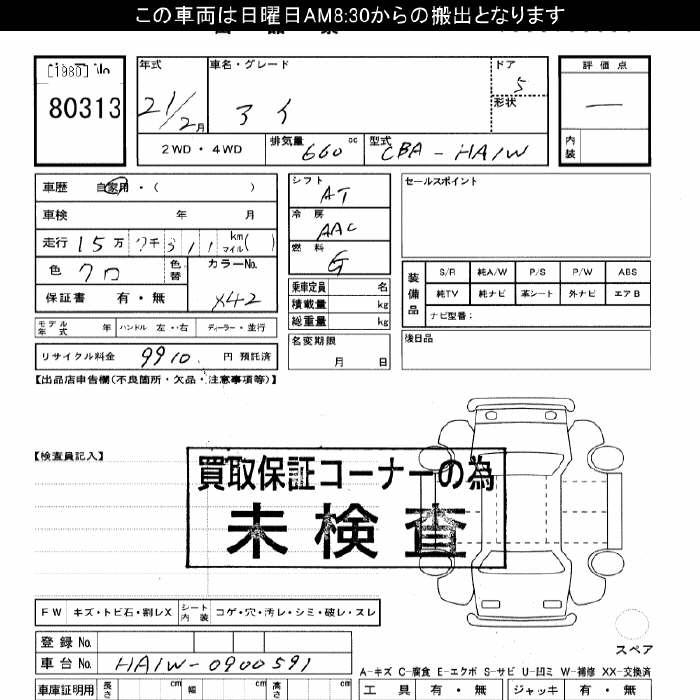 この車両は日曜日AM8:30からの搬出となります
[1980] No
80313
年式 車名・グレード ドア 評価点
21/2月 アイ 5 —
形状
2WD・4WD 排気量 660 cc 型式 CBA-HA1W 内装
車歴 自家用・( )
車検 年 月
走行 15万7千311 km マイル( )
色 クロ 色替 カラーNo.
保証書 有・無 X42
モデル年式 年 ハンドル 左・右 ディーラー・並行
リサイクル料金 9910 円 預託済
シフト AT
冷房 AAC
燃料 G
乗車定員 名
積載量 kg
総重量 kg
名変期限
月 日
セールスポイント
装備品 S/R 純A/W P/S P/W ABS
純TV 純ナビ 革シート 外ナビ エアB
ナビ型番:
後日品
【出品店申告欄(不良箇所・欠品・注意事項等)】
【検査員記入】
買取保証コーナーの為
未検査
FW キズ・トビ石・割レX シート内装 コゲ・穴・汚レ・シミ・破レ・スレ
登録No.
車台No. HA1W-0900591
スペア
A-キズ C-腐食 E-エクボ S-サビ U-凹ミ W-補修 XX-交換済
車庫証明用 長さ cm 幅 cm 高さ cm 工具 有・無 ジャッキ 有・無